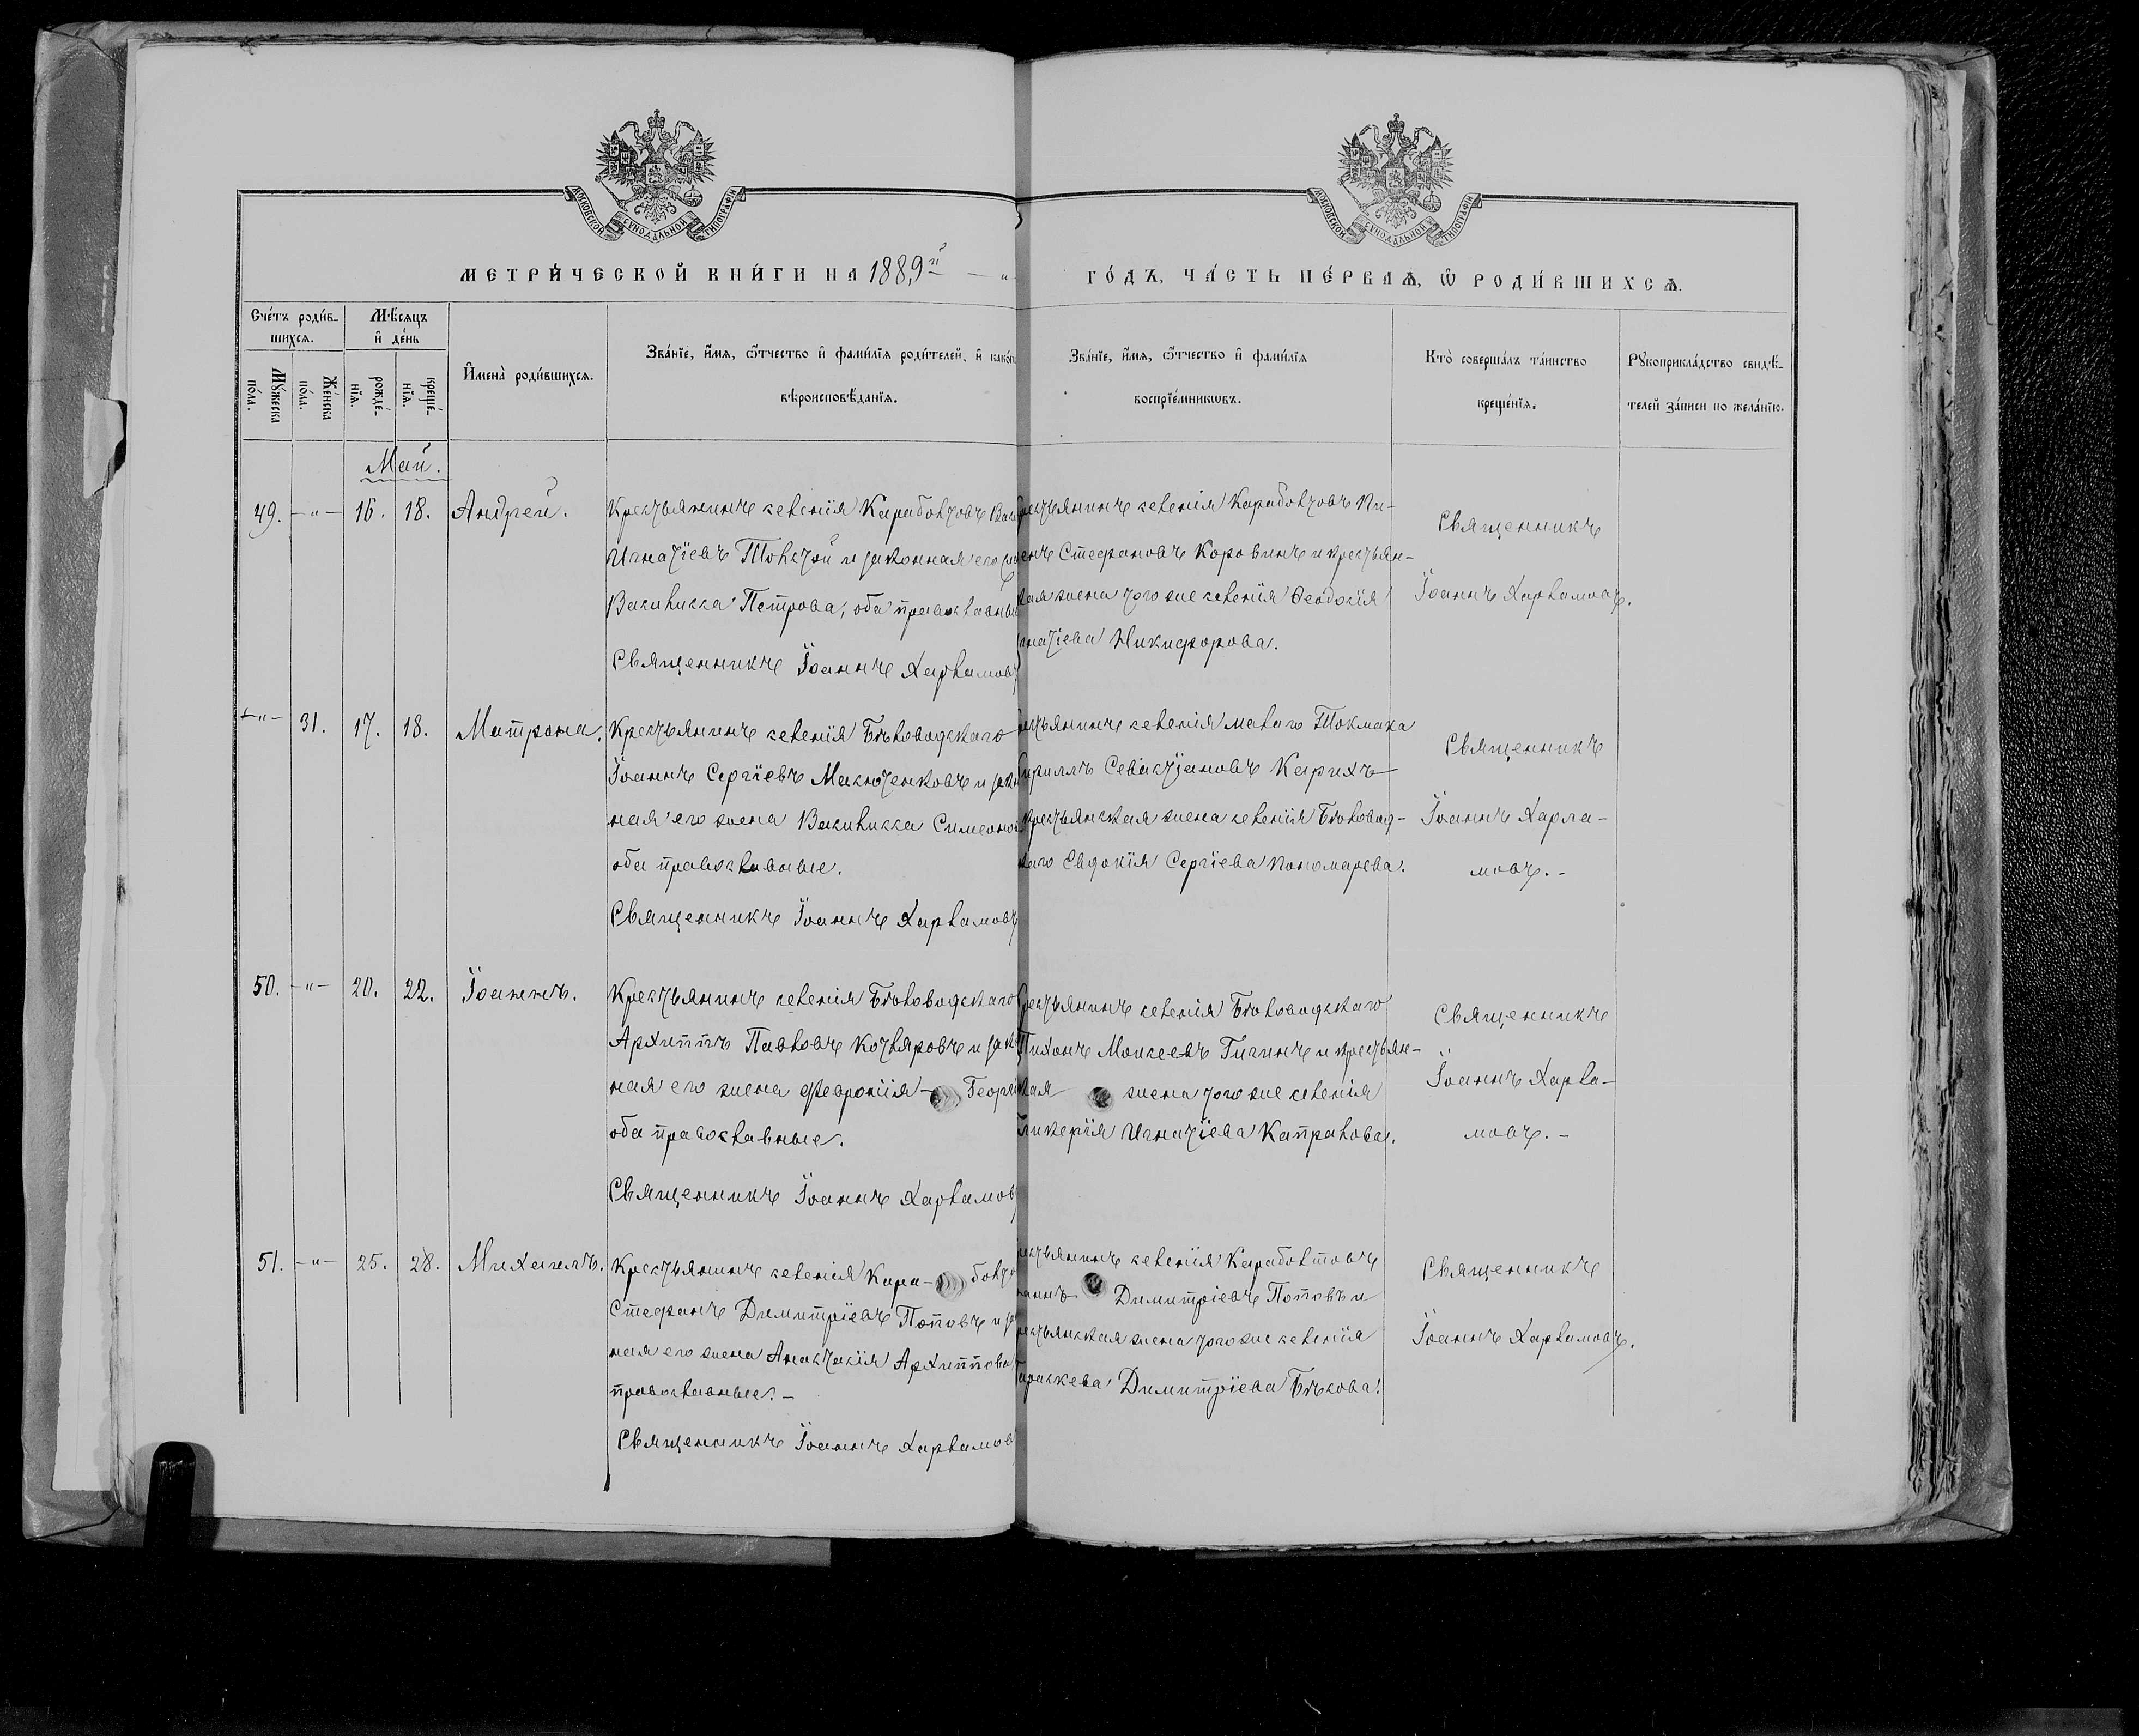 МОСКОВСКОЙ СѴНОДАЛЬНОЙ ТИПОГРАФІИ
МОСКОВСКОЙ СѴНОДАЛЬНОЙ ТИПОГРАФІИ
МЕТРИ́ЧЕСКОЙ КНИ́ГИ НА 1889й — „
ГО́ДЪ, ЧА́СТЬ ПЕ́РВАѦ, Ѽ РОДИ́ВШИХСѦ.
Сче́тъ роди́в-
шихсѧ.
Мѣ́сяцъ
и҆ де́нь
Мꙋ́жеска
по́ла.
Же́нска
по́ла.
рожде́-
нїѧ.
креще́-
нїѧ.
И҆мена̀ роди́вшихсѧ.
Зва́нїе, и҆́мѧ, ѻ҆́тчество и҆ фами́лїѧ роди́телей, и҆ како́гѡ
вѣроисповѣ́данїѧ.
Зва́нїе, и҆́мѧ, ѻ҆́тчество и҆ фами́лїѧ
воспрїе́мникѡвъ.
Кто̀ соверша́лъ та́инство
креще́нїѧ.
Рꙋкоприкла́дство свидѣ́-
телей за́писи по жела́нїю.
Май.
49. —„— 16. 18. Андрей.
Крестьянинъ селенія Карабоłтовъ
Игнатіевъ Толстой и законная его
Василисса Петрова, оба православные
Священникъ Іоаннъ Харламовъ
рестьянинъ селенія Караболтовъ Пи-
енъ Стефановъ Коровинъ и крестьян-
кая жена того же селенія Ѳеодосія
гнатіева Никифорова.
Священникъ
Іоаннъ Харламовъ.
—„— 31. 17. 18. Матрона.
Крестьянинъ селенія Бѣловодскаго
Іоаннъ Сергіевъ Макютенковъ и закон
ная его жена Василисса Симеонов
оба православные.
Священникъ Іоаннъ Харламовъ
естьянинъ селенія малаго Токмака
ириллъ Севастіановъ Карихъ
крестьянская жена селенія Бѣловод-
каго Евдокія Сергіева Пономарева.
Священникъ
Іоаннъ Харла-
мовъ. -
50. —„— 20. 22. Іоаннъ.
Крестьянинъ селенія Бѣловодскаго
Архиппъ Павловъ Котляровъ и зак
ная его жена Февронія — Георгі
оба православные.
Священникъ Іоаннъ Харламов
рестьянинъ селенія Бѣловодскаго
Тихонъ Моисеевъ Гигинъ и крестьян-
кая жена того же селенія
Гликерія Игнатіева Капралова.
Священникъ
Іоаннъ Харла-
мовъ. -
51. —„— 25. 28. Михаилъ.
Крестьянинъ селенія Кара- болт
Стефанъ Димитріевъ Поповъ и за
ная его жена Анастасія Архиппова
православные. -
Священникъ Іоаннъ Харламов
естьянинъ селенія Караболтовъ
аннъ Димитріевъ Поповъ и
естьянская жена того же селенія
Параскева Димитріева Бѣлова.
Священникъ
Іоаннъ Харламовъ.